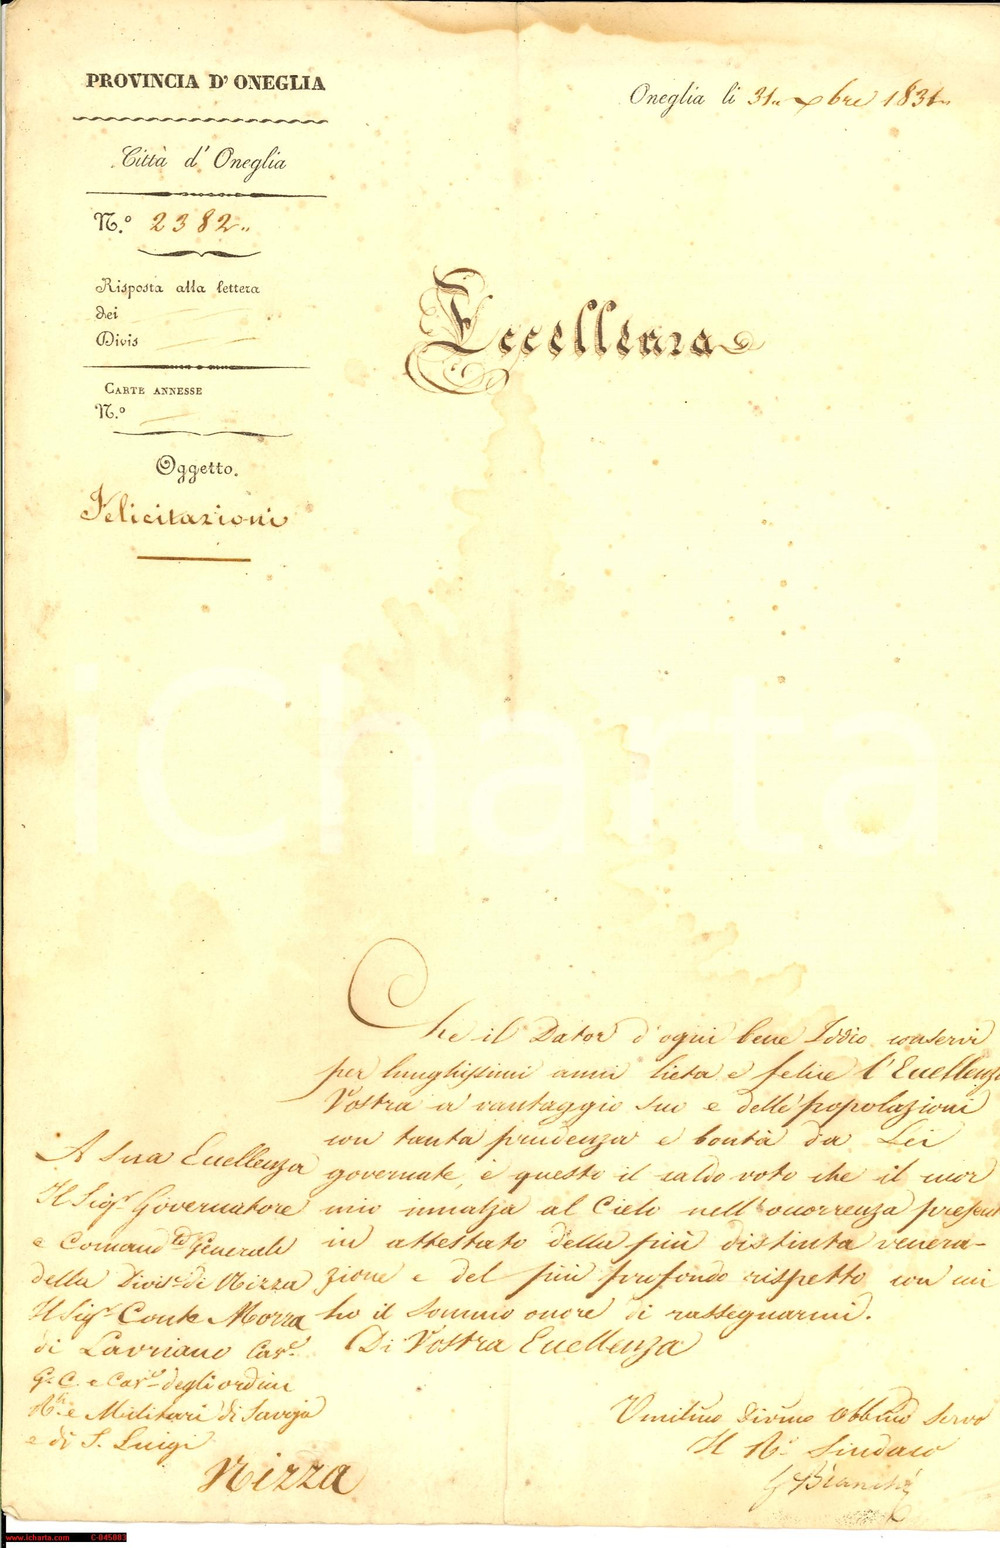 PROVINCIA D' ONEGLIA
Oneglia li 31.. xbre 1831..
Città d' Oneglia
N.º 2382..
Risposta alla lettera
dei
Divis
CARTE ANNESSE
N.º
Oggetto.
Felicitazioni
Eccellenza
Che il Dator d'ogni bene Iddio conservi
per lunghissimi anni lieta e felice l'Eccellenza
Vostra a vantaggio suo e delle popolazioni
con tanta prudenza e bontà da Lei
governate, è questo il caldo voto che il cuor
mio innalza al Cielo nell'occorrenza presente
in attestato della più distinta venera-
zione e del più profondo rispetto con cui
ho il sommo onore di rassegnarmi.
Di Vostra Eccellenza
A Sua Eccellenza
Il Sigr Governatore
e Comandte Generale
della Divise di Nizza
Il Sigr Conte Morra
di Lavriano Cave
G. C. e Cave degli ordini
Rli e Militari di Savoja
e di S. Luigi
Nizza
Umilmo Divmo Obbmo Servo
Il Rio Sindaco
Bianchi
iCharta
www.icharta.com C-045883